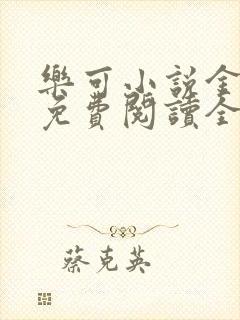 樂可小說全
免費閱讀全
蔡克英